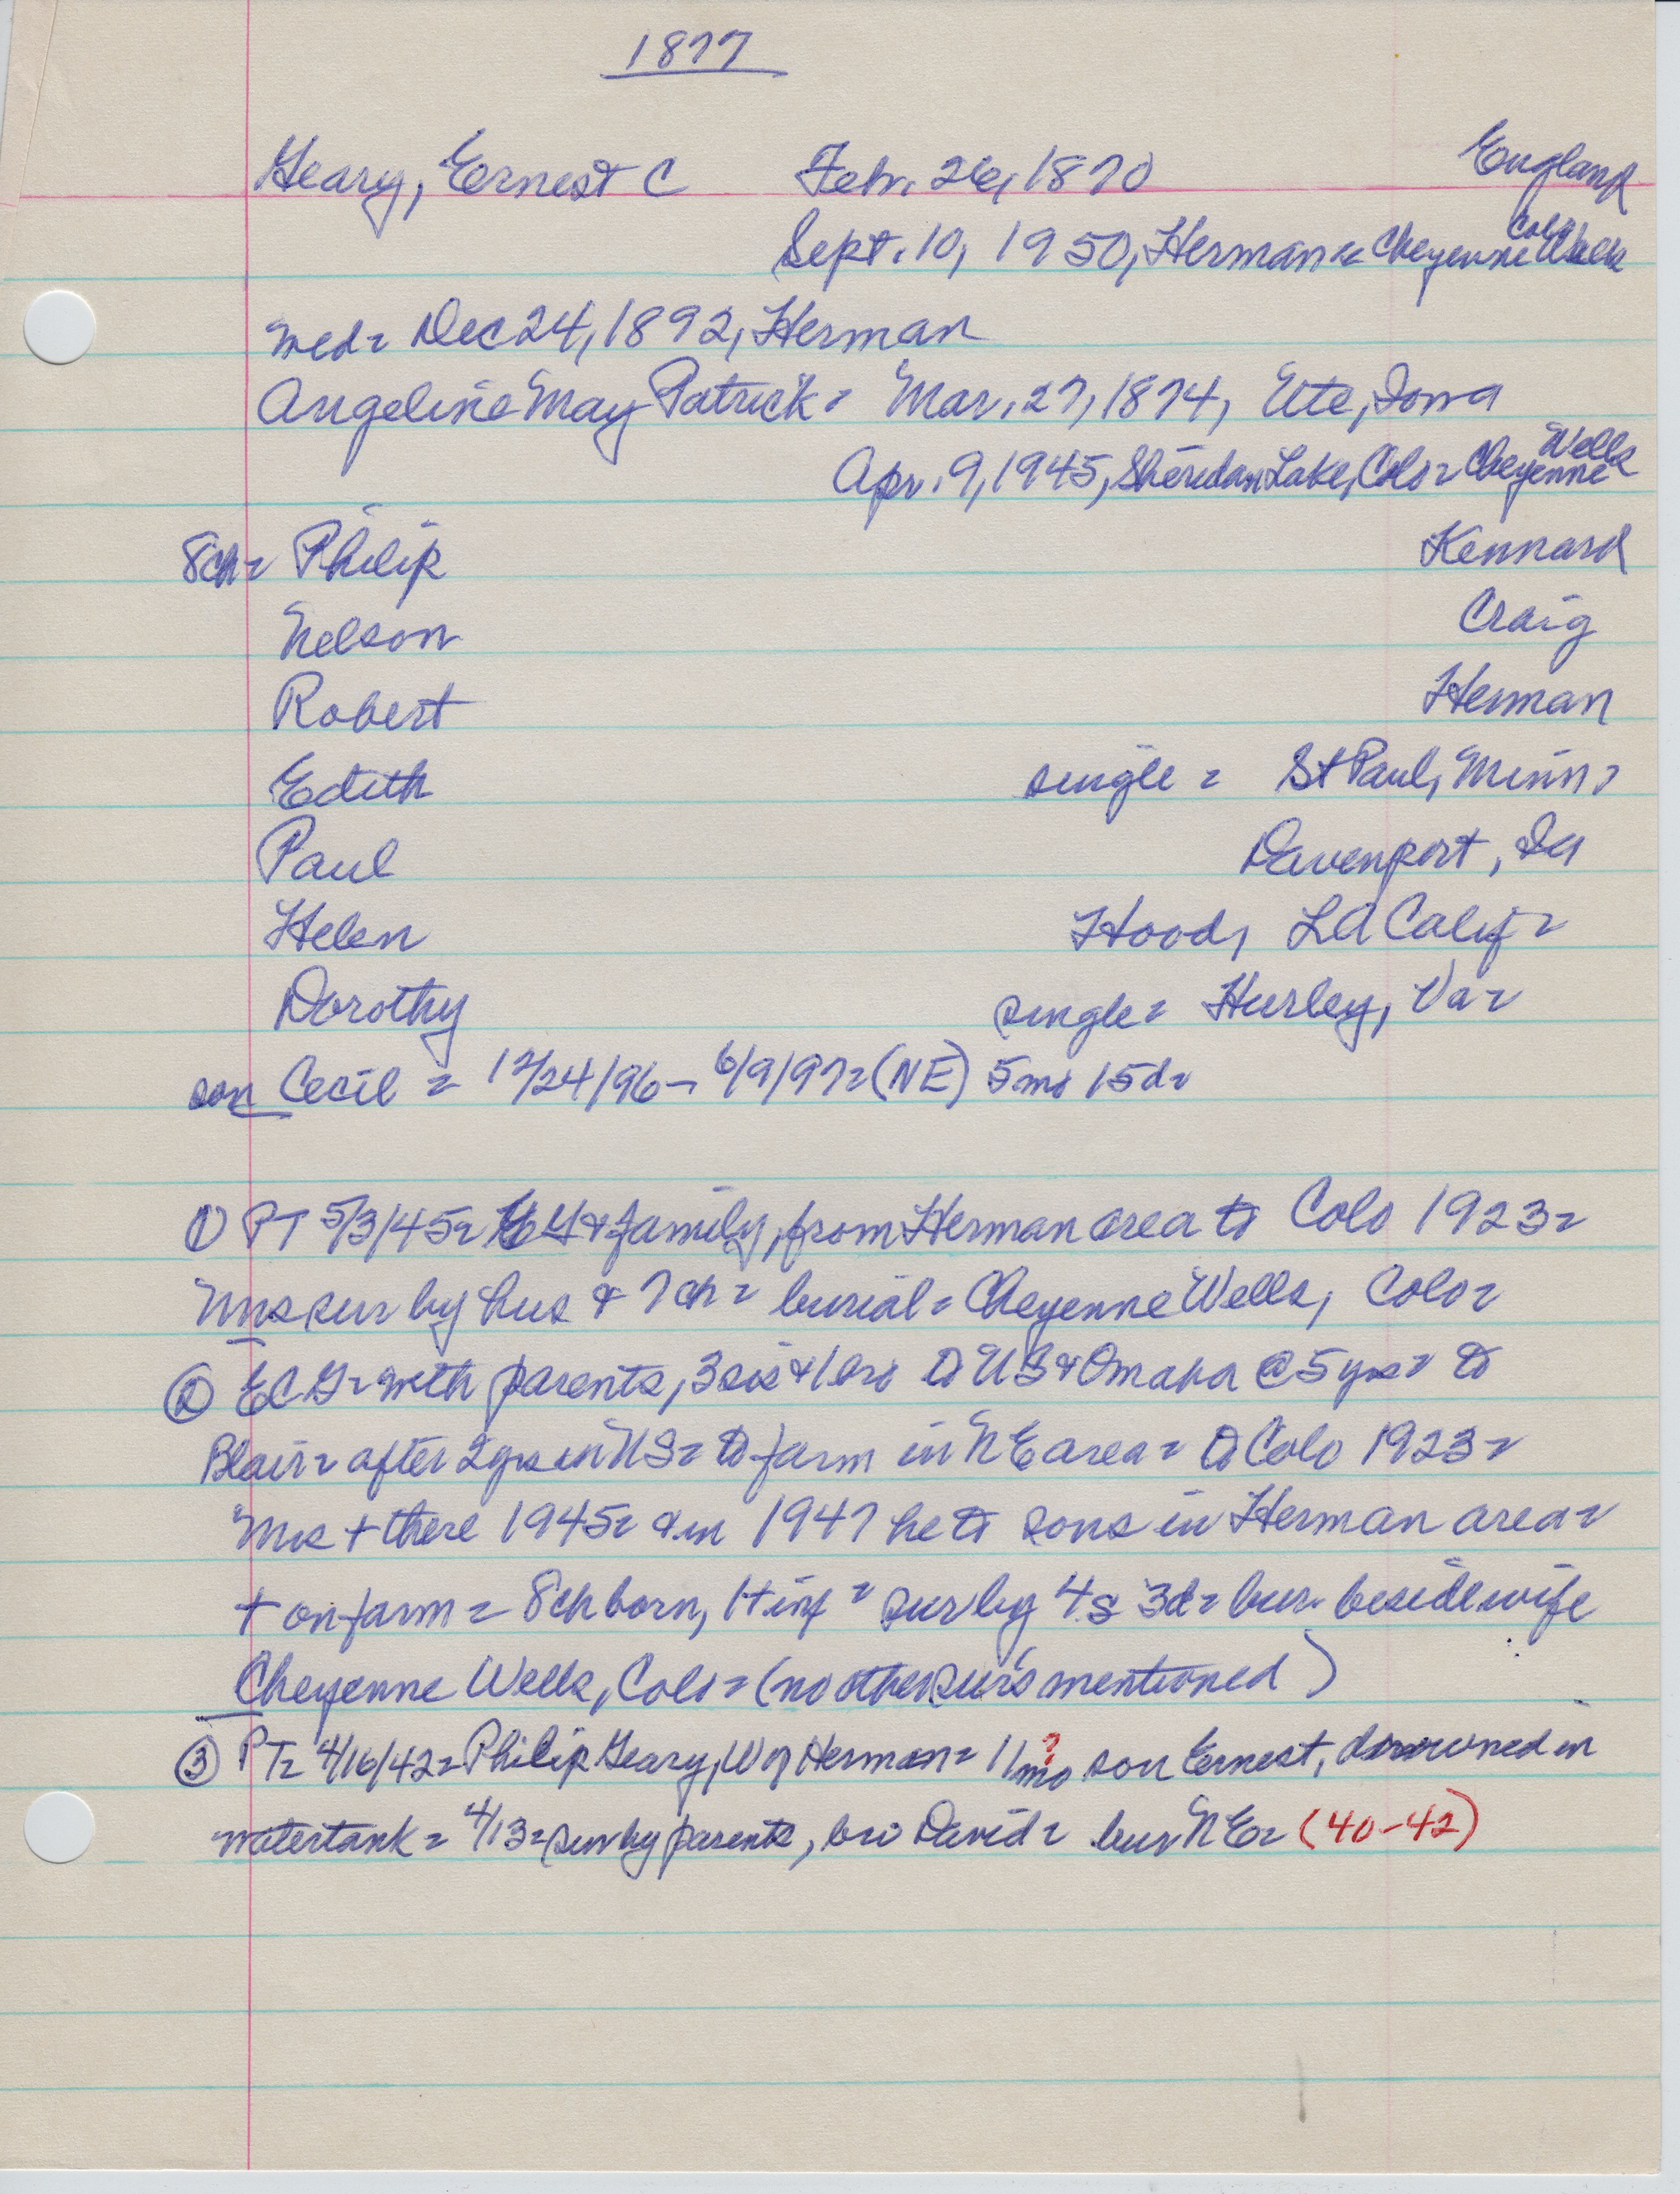 1877
Geary, Ernest C Feb. 26, 1870 England
Sept. 10, 1950, Herman = Cheyenne Wells Colo
wed = Dec 24, 1892, Herman
Angeline May Patrick = Mar. 27, 1874, Ute, Iowa
Apr. 9, 1945, Sheridan Lake, Colo = Cheyenne Wells
8ch = Philip Kennard
Nelson Craig
Robert Herman
Edith single = St Paul, Minn =
Paul Davenport, Ia
Helen Hood, LA Calif =
Dorothy single = Hurley, Va =
son Cecil = 12/24/96 - 6/9/97 = (NE) 5mo 15d =
① PT 5/3/45 = & family, from Herman area to Colo 1923 =
Mrs sur by hus & 7 ch = burial = Cheyenne Wells, Colo =
② ECG = with parents, 3 sis & 1 bro to US & Omaha @ 5 yrs = to
Blair = after 2 yrs in US = to farm in NE area = to Colo 1923 =
Mrs + there 1945 = & in 1947 he to sons in Herman area =
+ on farm = 8 ch born, 1 + inf = sur by 4 s 3d = bur. beside wife
Cheyenne Wells, Colo = (no other surs mentioned)
③ PT = 4/16/42 = Philip Geary, W of Herman = 11 mo ? son Ernest, drowned in
watertank = 4/13 = sur by parents, bro David = bur NE = (40-42)